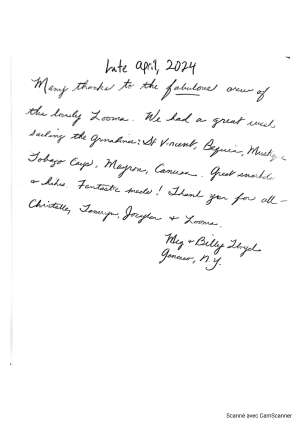 Late April, 2024
Many thanks to the fabulous crew of
the lovely Looma. We had a great week
sailing the Grenadines: St Vincent, Bequia,
Tobago Cays, Mayreau, Canouan. Great snorkels
& hikes. Fantastic meals! Thank you for all –
Christelle, Jocelyn & Looma.
Meg & Billy Lloyd
Geneseo, N.Y.
Scanné avec CamScanner